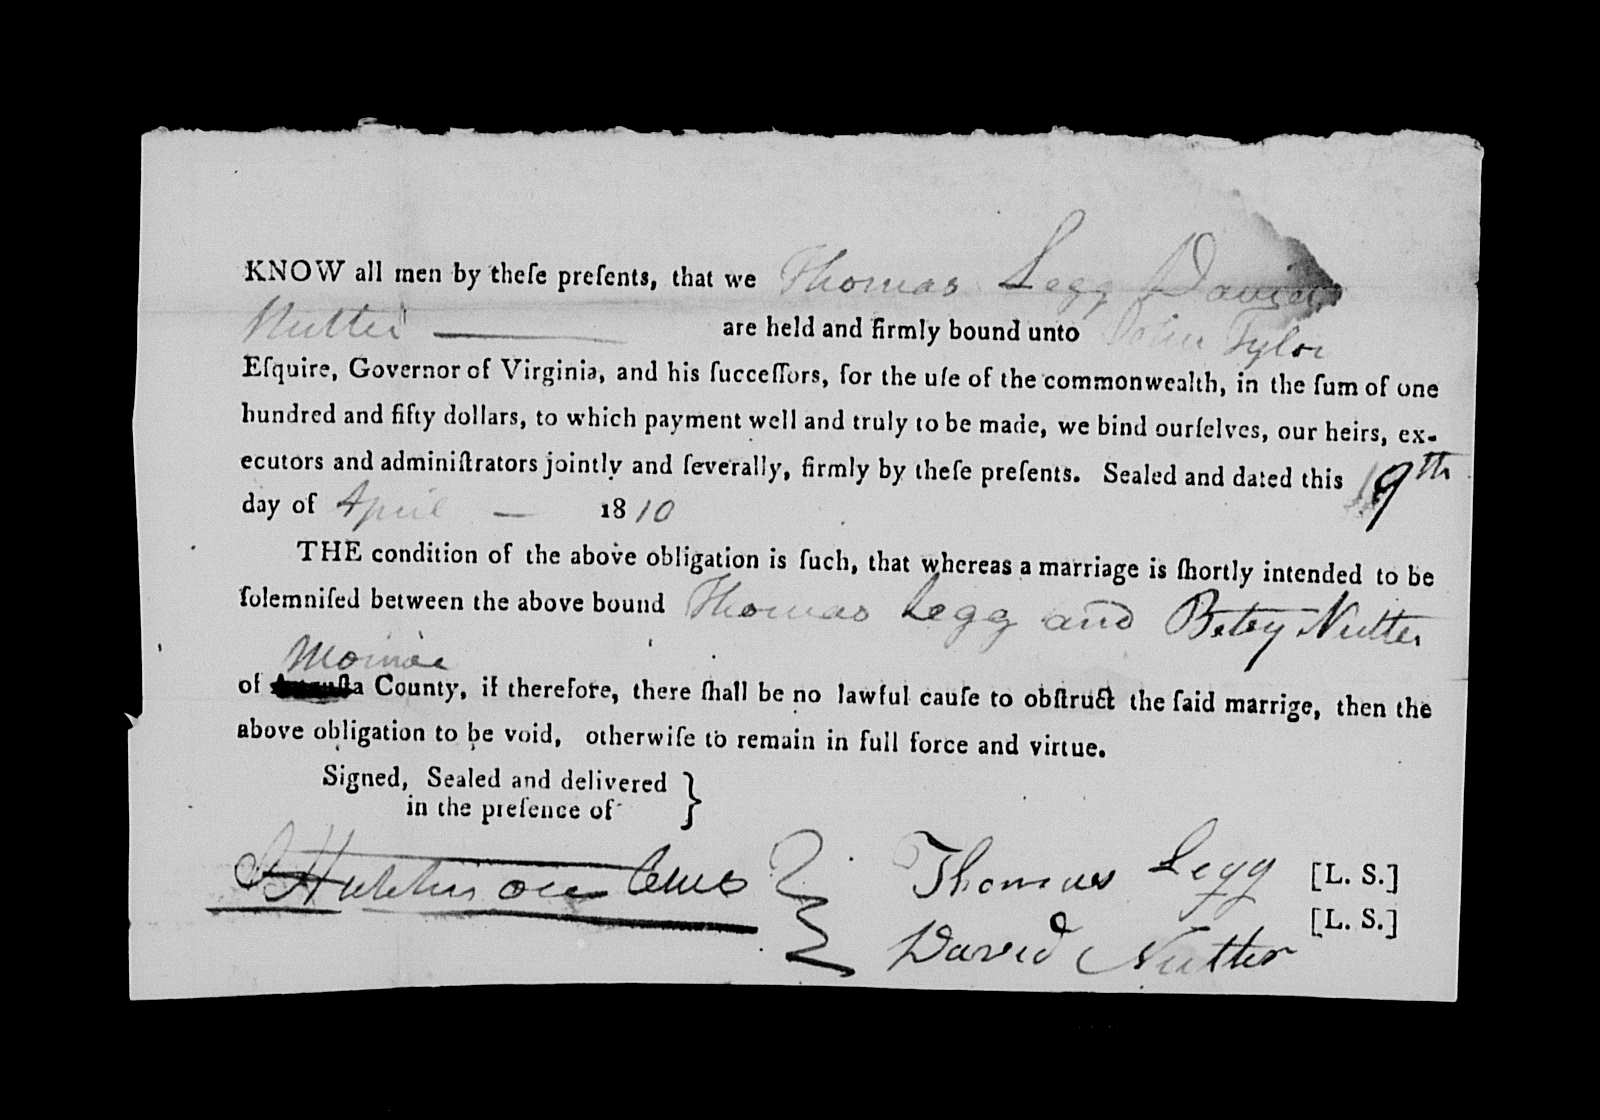 KNOW all men by theſe preſents, that we Thomas Legg David
Nutter — are held and firmly bound unto John Tyler
Eſquire, Governor of Virginia, and his ſucceſſors, for the uſe of the commonwealth, in the ſum of one
hundred and fifty dollars, to which payment well and truly to be made, we bind ourſelves, our heirs, ex-
ecutors and adminiſtrators jointly and ſeverally, firmly by theſe preſents. Sealed and dated this 19th
day of April — 1810
THE condition of the above obligation is ſuch, that whereas a marriage is ſhortly intended to be
ſolemniſed between the above bound Thomas Legg and Betsy Nutter
Monroe
of Auguſta County, if therefore, there ſhall be no lawful cauſe to obſtruct the ſaid marrige, then the
above obligation to be void, otherwiſe to remain in full force and virtue.
Signed, Sealed and delivered }
in the preſence of
Hutchinson Thomas Legg [L. S.]
David Nutter [L. S.]